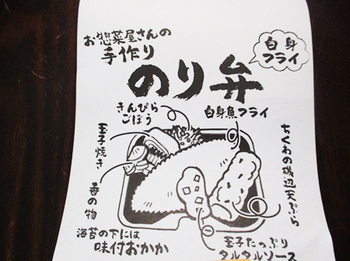 お惣菜屋さんの
手作り
のり弁
白身
フライ
きんぴら
ごぼう
白身魚フライ
玉子焼き
ちくわの磯辺天ぷら
香の物
海苔の下には
味付おかか
玉子たっぷり
タルタルソース